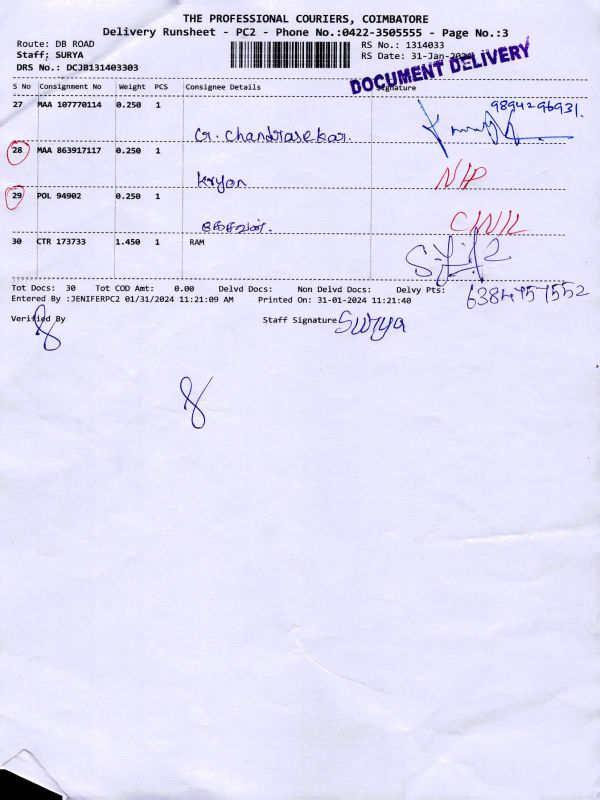 THE PROFESSIONAL COURIERS, COIMBATORE
Delivery Runsheet - PC2 - Phone No.:0422-3505555 - Page No.:3
Route: DB ROAD
RS No.: 1314033
Staff: SURYA
RS Date: 31-Jan-2024
DRS No.: DCJB131403303
DOCUMENT DELIVERY
S No Consignment No Weight PCS Consignee Details Signature
27 MAA 107770114 0.250 1
9894296931.
Cr. Chandrasekar.
28 MAA 863917117 0.250 1
N/P
29 POL 94902 0.250 1
30 CTR 173733 1.450 1 RAM
Tot Docs: 30 Tot COD Amt: 0.00 Delvd Docs: Non Delvd Docs: Delvy Pts:
6384757552
Entered By :JENIFERPC2 01/31/2024 11:21:09 AM Printed On: 31-01-2024 11:21:40
Verified By Staff Signature Surya